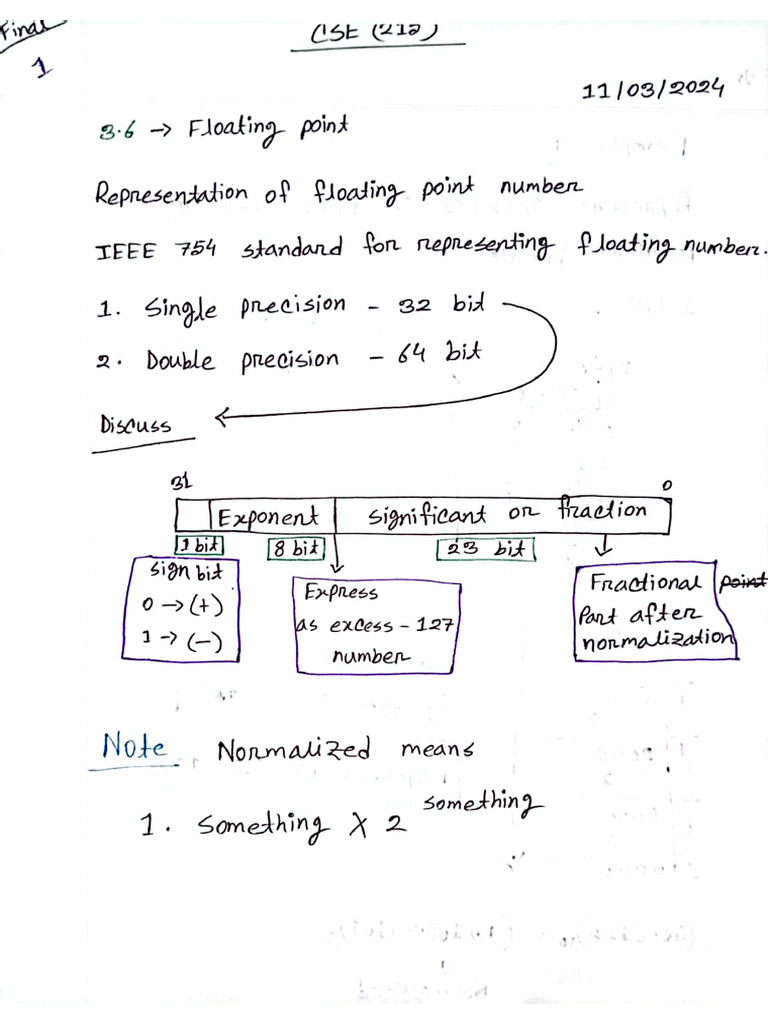 Final
1
CSE (212)
11/03/2024
3.6 → Floating point
Representation of floating point number
IEEE 754 standard for representing floating number.
1. Single precision - 32 bit
2. Double precision - 64 bit
Discuss
31 0
Exponent significant or fraction
1 bit 8 bit 23 bit
sign bit
0 → (+)
1 → (-)
Express
as excess - 127
number
Fractional point
Part after
normalization
Note Normalized means
1. something X 2 something